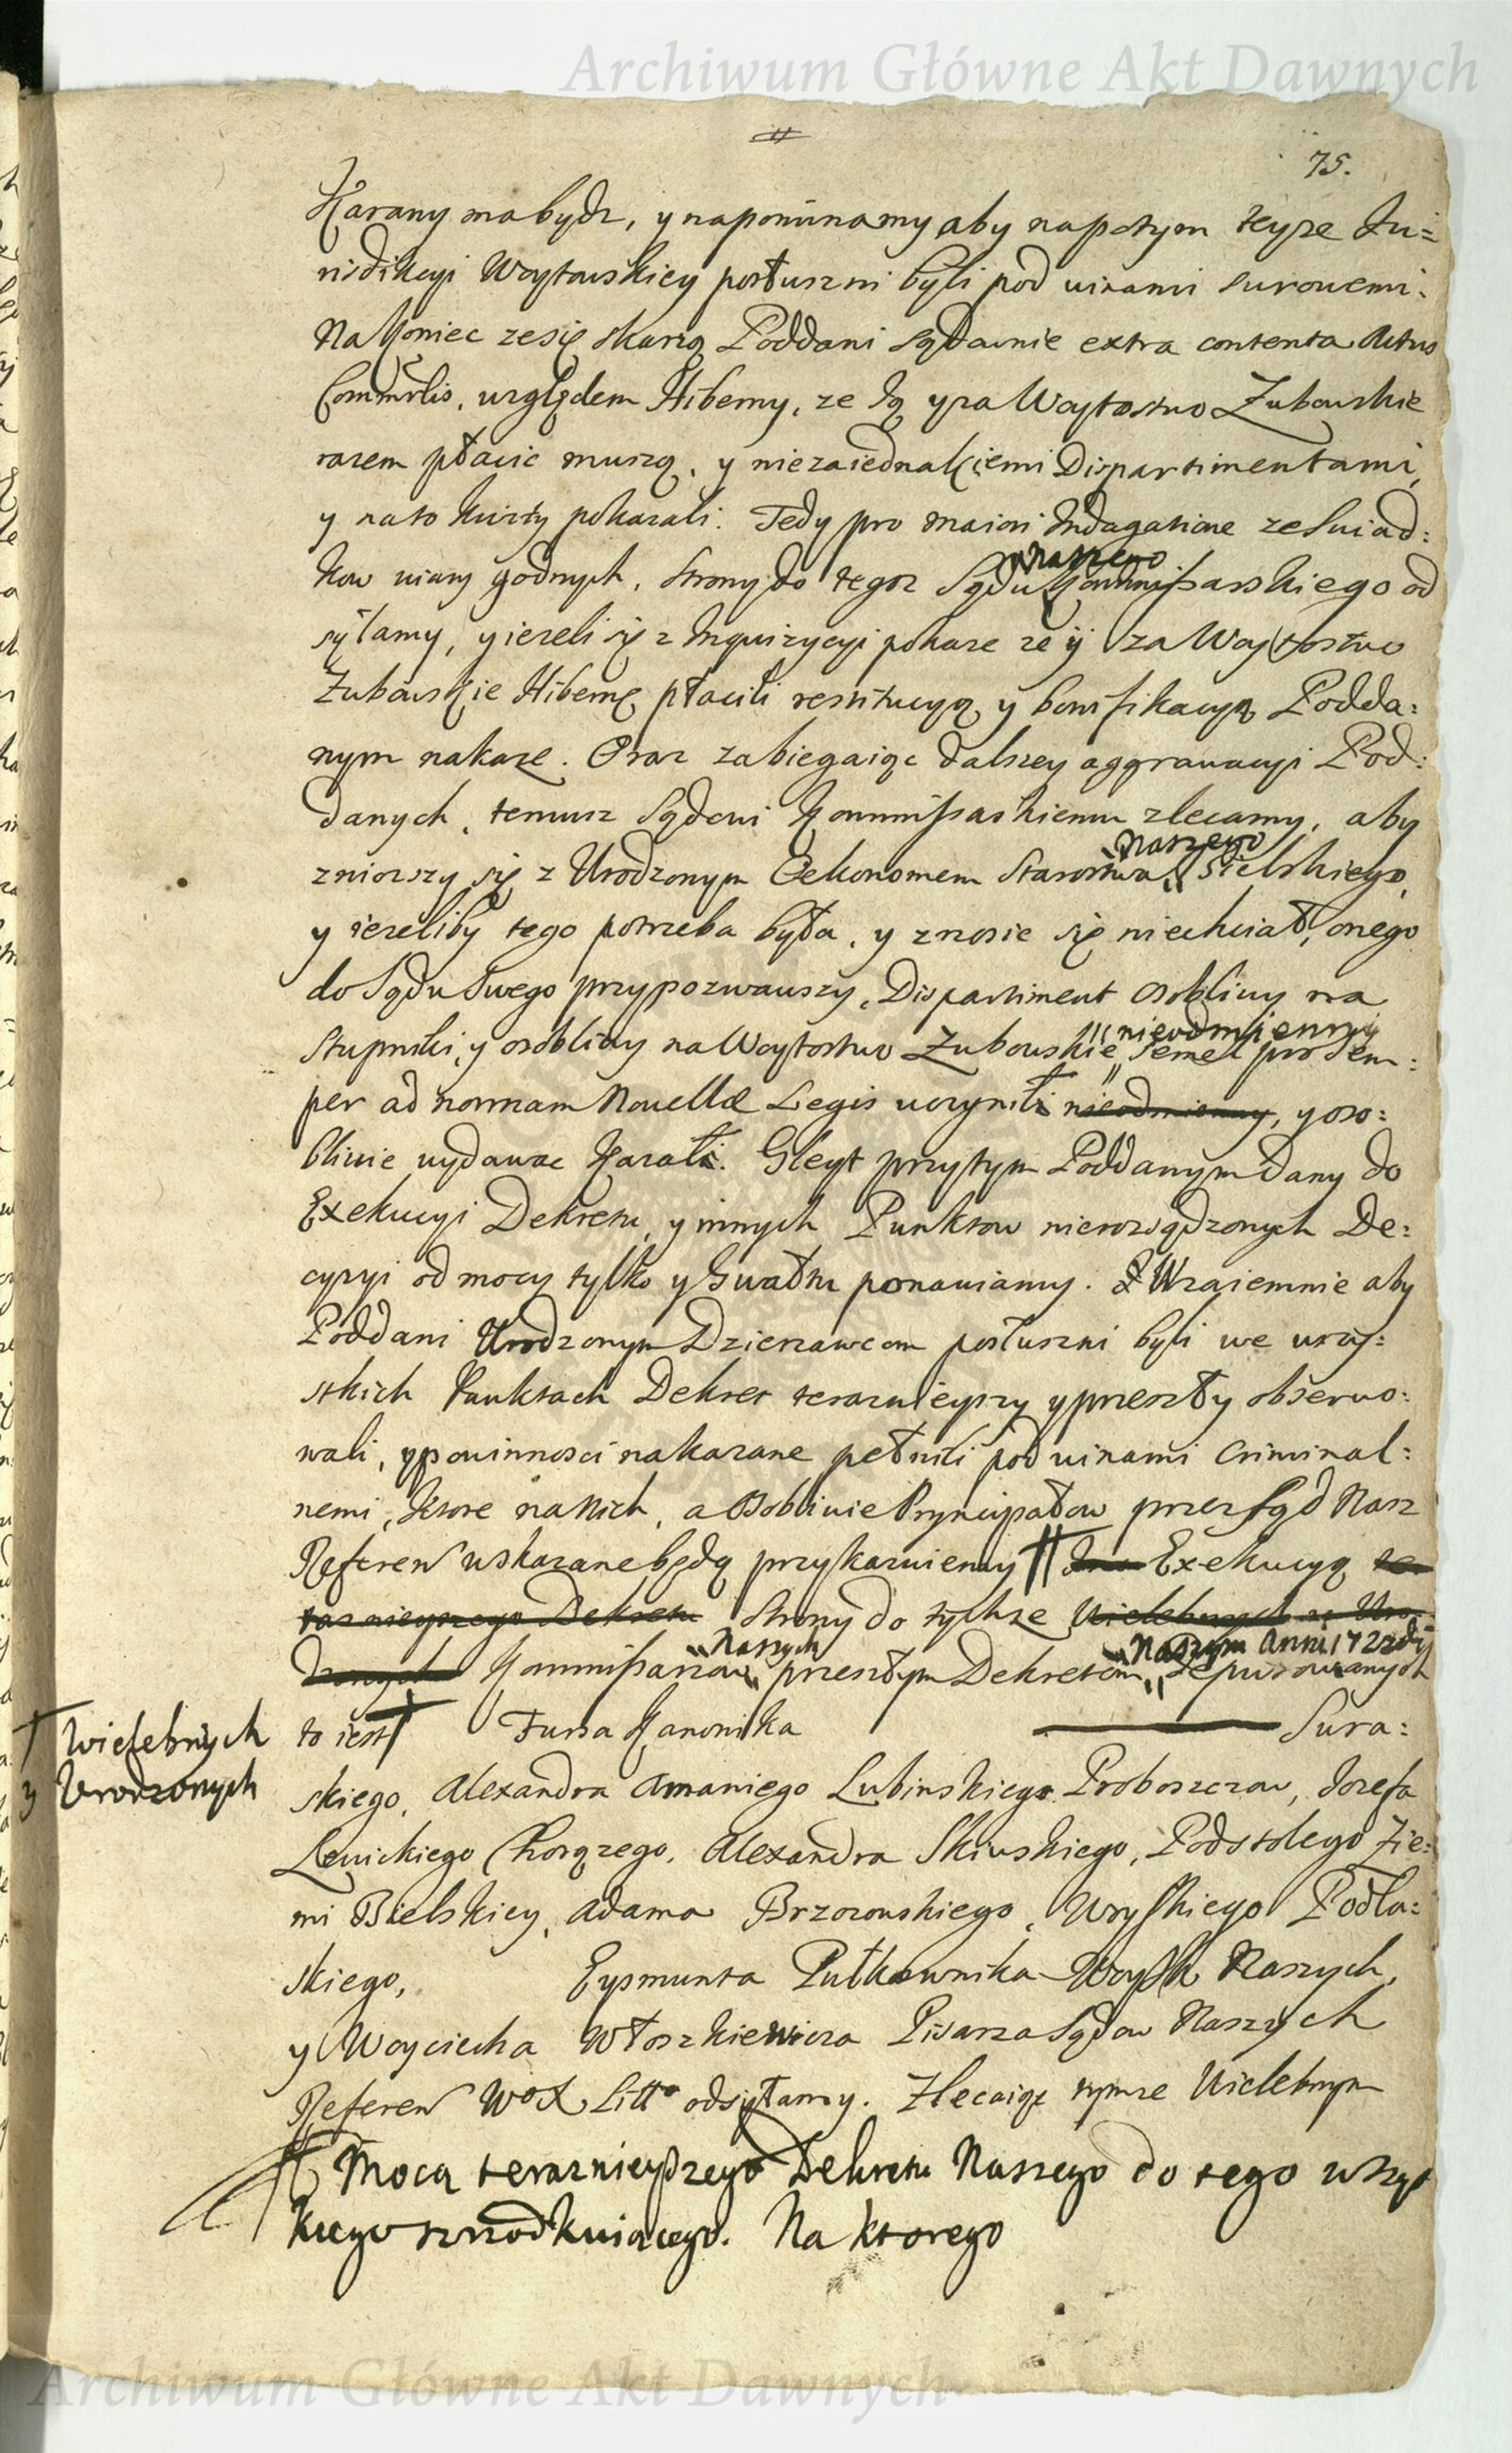 Archiwum Główne Akt Dawnych
75.
Karany ma bydz, y napominamy aby napotym teyze Ju=
risdikcyi Woytowskiey posłuszni byli pod winami surowemi.
Na koniec ze się skarzą Poddani Sądownie extra contenta Actus
Commrlis, względem Hiberny, ze Ią y za Woytostwo Zubowskie
razem płacic muszą, y niezaiednakiemi Dispartimentami,
y na to kwity pokazali. Tedy pro maiori Indagatione ze Swiad:
kow wiary godnych, strony do tegoz Sądu Naszego Kommissarskiego od
syłamy, y iezeli się z Inquizycyi pokaze ze ij za Woytostwo
Zubowskie Hibernę płacili restitucyą y bonifikacyą Podda:
nym nakaze. Oraz zabiegaiąc dalszey aggrawacyi Pod:
danych, temusz Sądowi Kommissarskiemu zlecamy, aby
zniozszy się z Urodzonym Oekonomem Starostwa Naszego Bielskiego,
y iezeliby tego potrzeba była, y znosic się niechciał, onego
do Sądu Swego przypozwawszy, Dispartiment osobliwy na
Stupniki, y osobliwy na Woytostwo Zubowskie nieodmienny semel pro sem:
per ad normam Novellæ Legis uczynił nieodmienny, y oso:
bliwie wydawac kazał. Gleyt przytym Poddanym dany do
Exekucyi Dekretu, y innych Punktow nierozsądzonych De:
cyzyi od mocy tylko y Gwałtu ponawiamy. Wzaiemnie aby
Poddani Urodzonym Dzierzawcom posłuszni byli we wszy:
stkich Punktach Dekret teraznieyszy y przeszły obserwo:
wali, y powinnosci nakazane pełnili pod winami Criminal:
nemi, ktore na nich, a osobliwie Pryncypałow przez Sąd Nasz
Referen wskazane będą przykazuiemy Exekucyą te
raznieyszego Dekretu strony do tychze Wielebnych y Uro
dzonych Kommissarzow Naszych przeszłym Dekretem Naszym Anni 1722dij deputowanych
to iest Fursa Kanonika Sura:
Wielebnych
y Urodzonych
skiego, Alexandra Amaniego Lubinskiego Proboszczow, Jozefa
Lewickiego Chorązego, Alexandra Skiwskiego, Podstolego Zie:
mi Bielskiey, Adama Brzozowskiego, Woyskiego Podla:
skiego, Eysmunta Pułkownika Woysk Naszych,
y Woyciecha Włoszkiewicza Pisarza Sądow Naszych
Referen odsyłamy. Zlecaiąc tymze Wielebnym
Mocą terazniejszego Dekretu Naszego do tego wszyt
kiego Na ktorego
Archiwum Główne Akt Dawnych